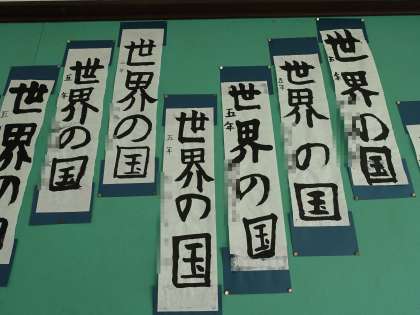 世界の国
五年
世界の国
五年
世界の国
五年
世界の国
五年
世界の国
五年
世界の国
五年
世界の
五